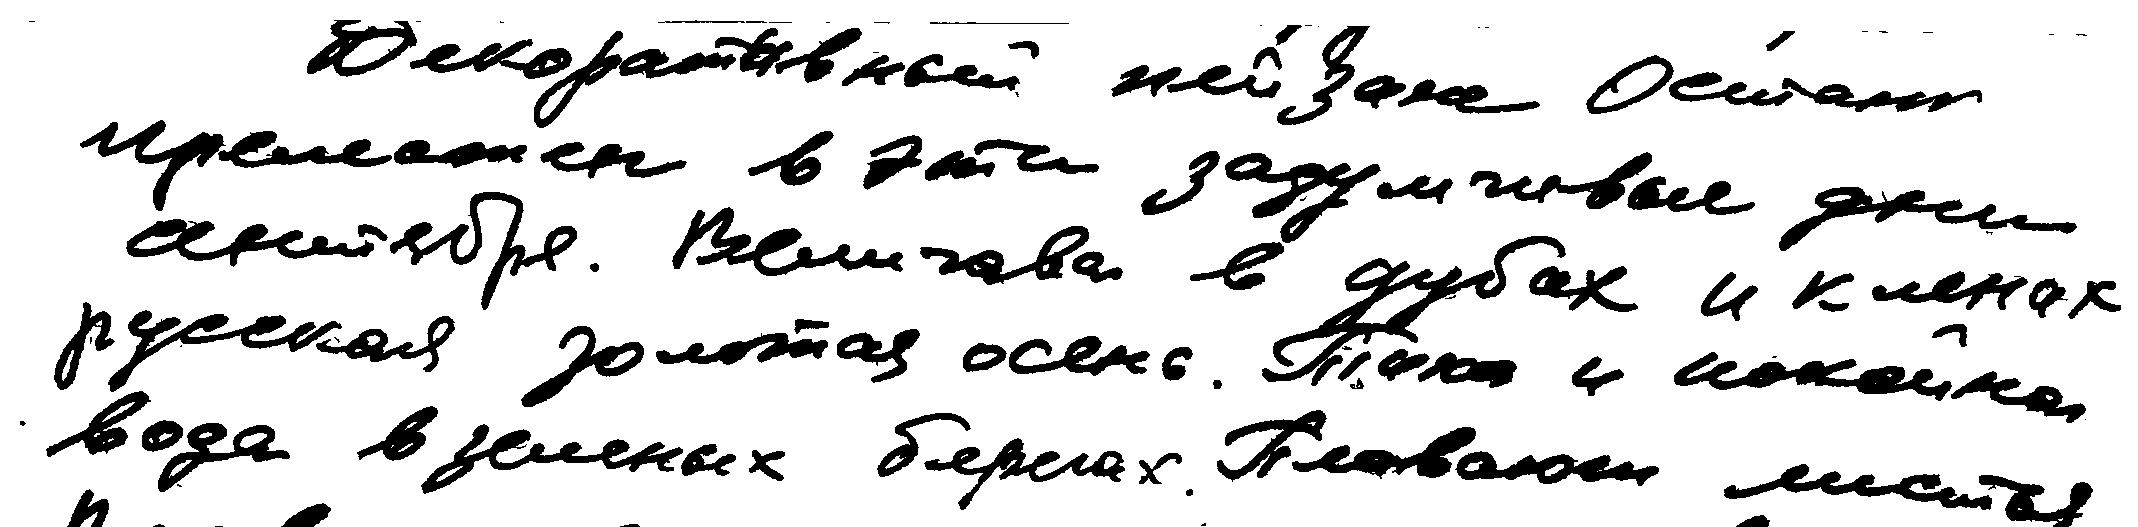 Декоративный пейзаж Останк
прелестен в эти задумчивые дни
сентября. Величава в дубах и кленах
русская золотая осень. Тиха и покойна
вода в зеленых берегах. Плавают листья